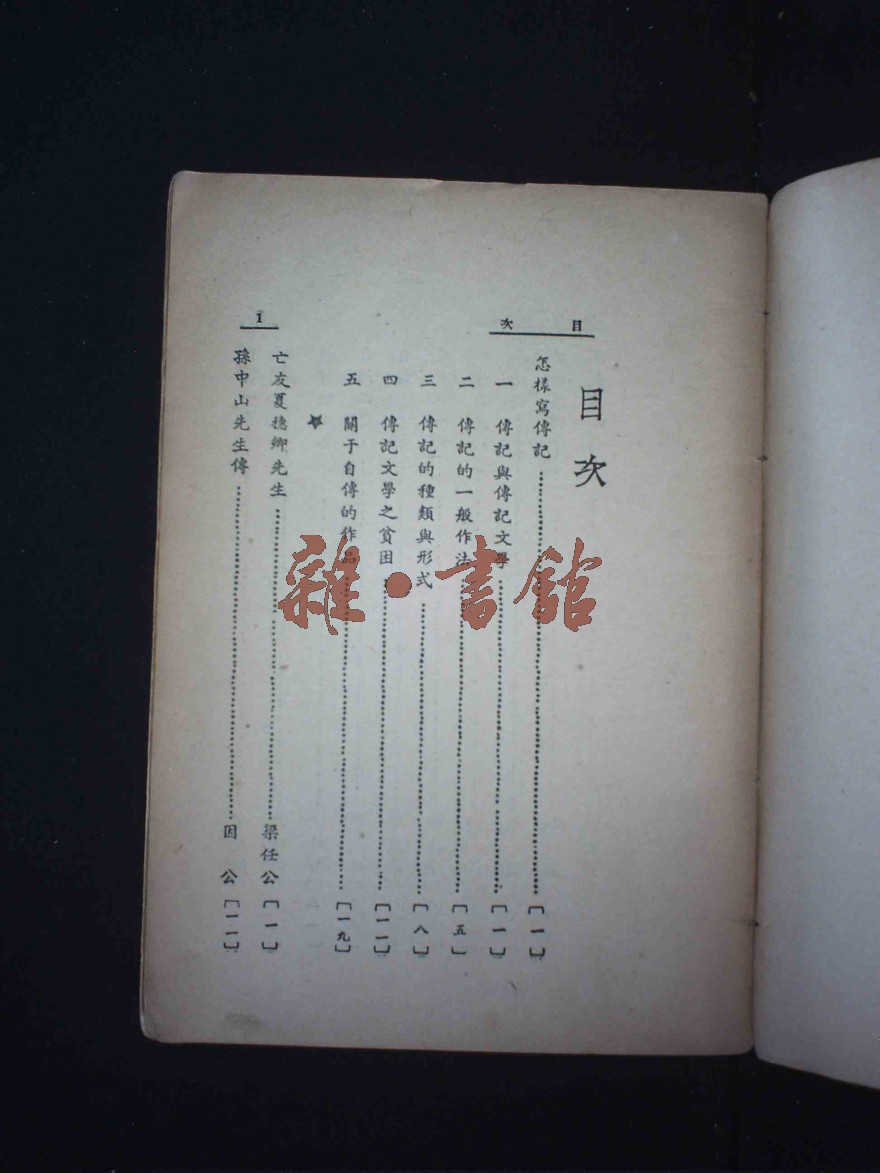 目次
1
目次
怎樣寫傳記……〔一〕
一 傳記與傳記文學……〔一〕
二 傳記的一般作法……〔五〕
三 傳記的種類與形式……〔八〕
四 傳記文學之貧困……〔一一〕
五 關于自傳的作品……〔一九〕
亡友夏穗卿先生……梁任公〔一〕
孫中山先生傳……因公〔一一〕
雜·書館